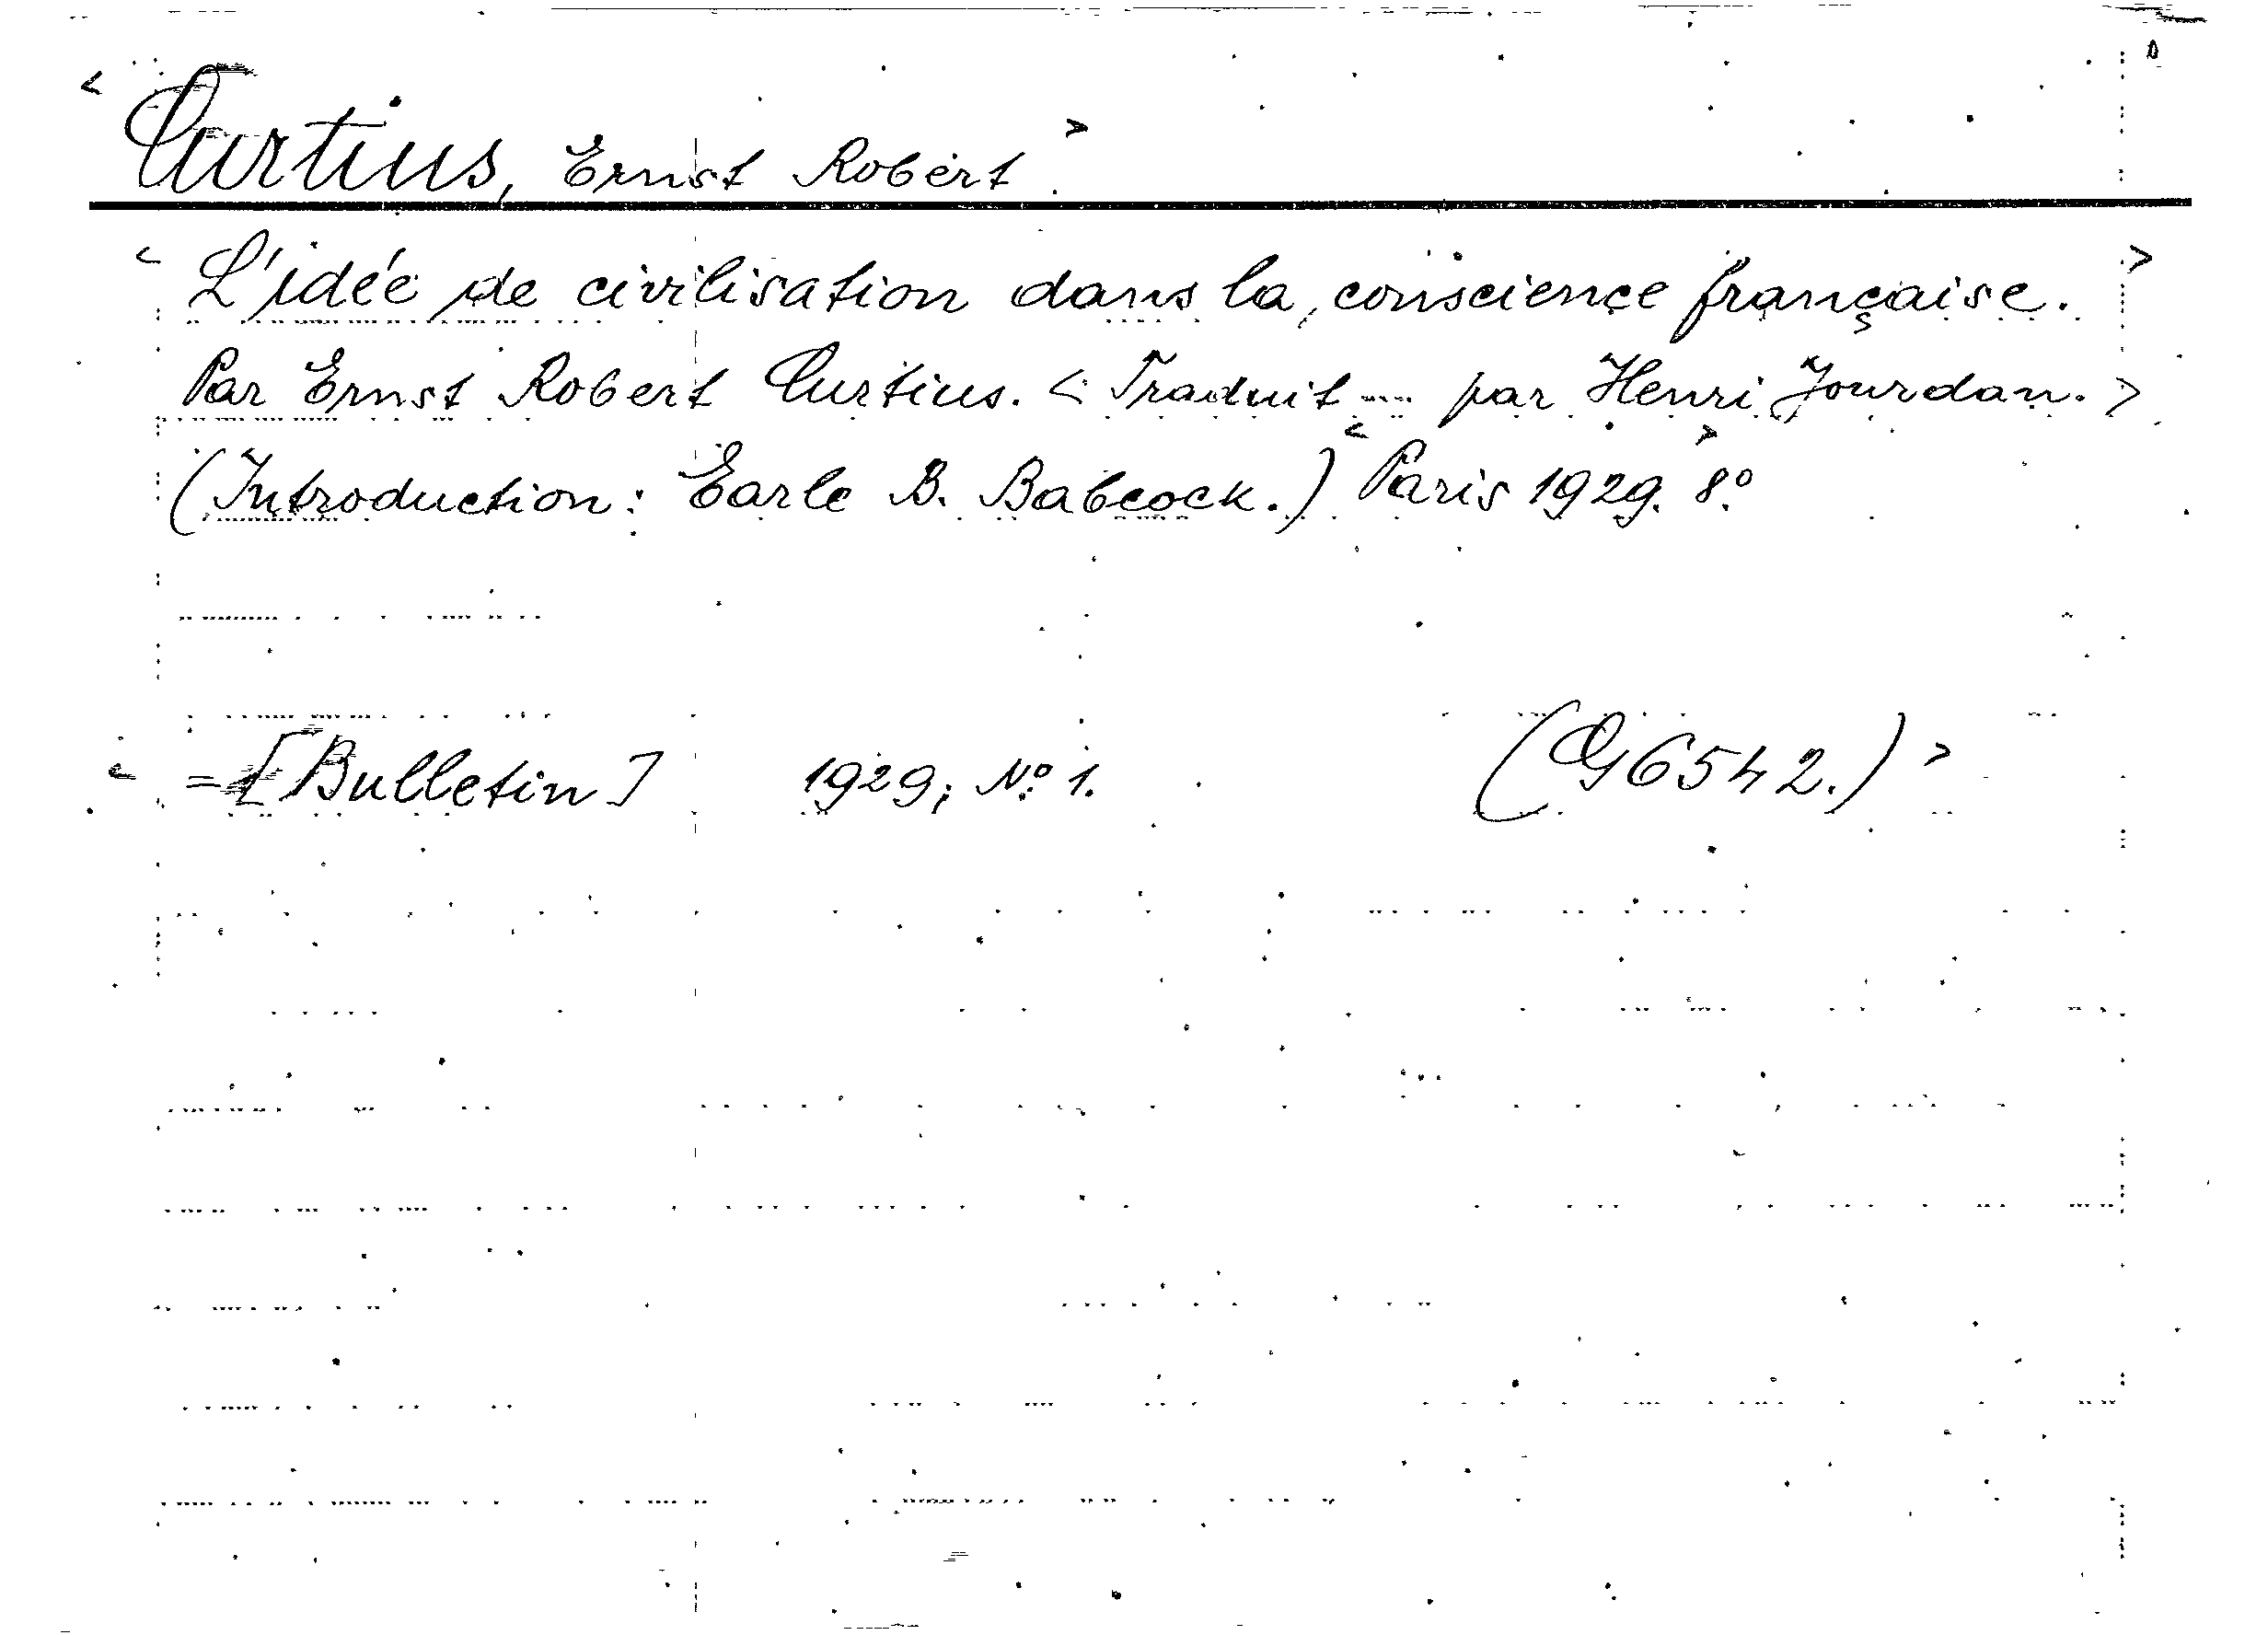 < Curtius, Ernst Robert. >
< L'idée de civilisation dans la conscience française. >
Par Ernst Robert Curtius. < Traduit ... par Henri Jourdan. >
(Introduction: Earle B. Babcock.) < Paris > 1929. 8°.
< = [Bulletin] 1929, No. 1. (G6542.) >